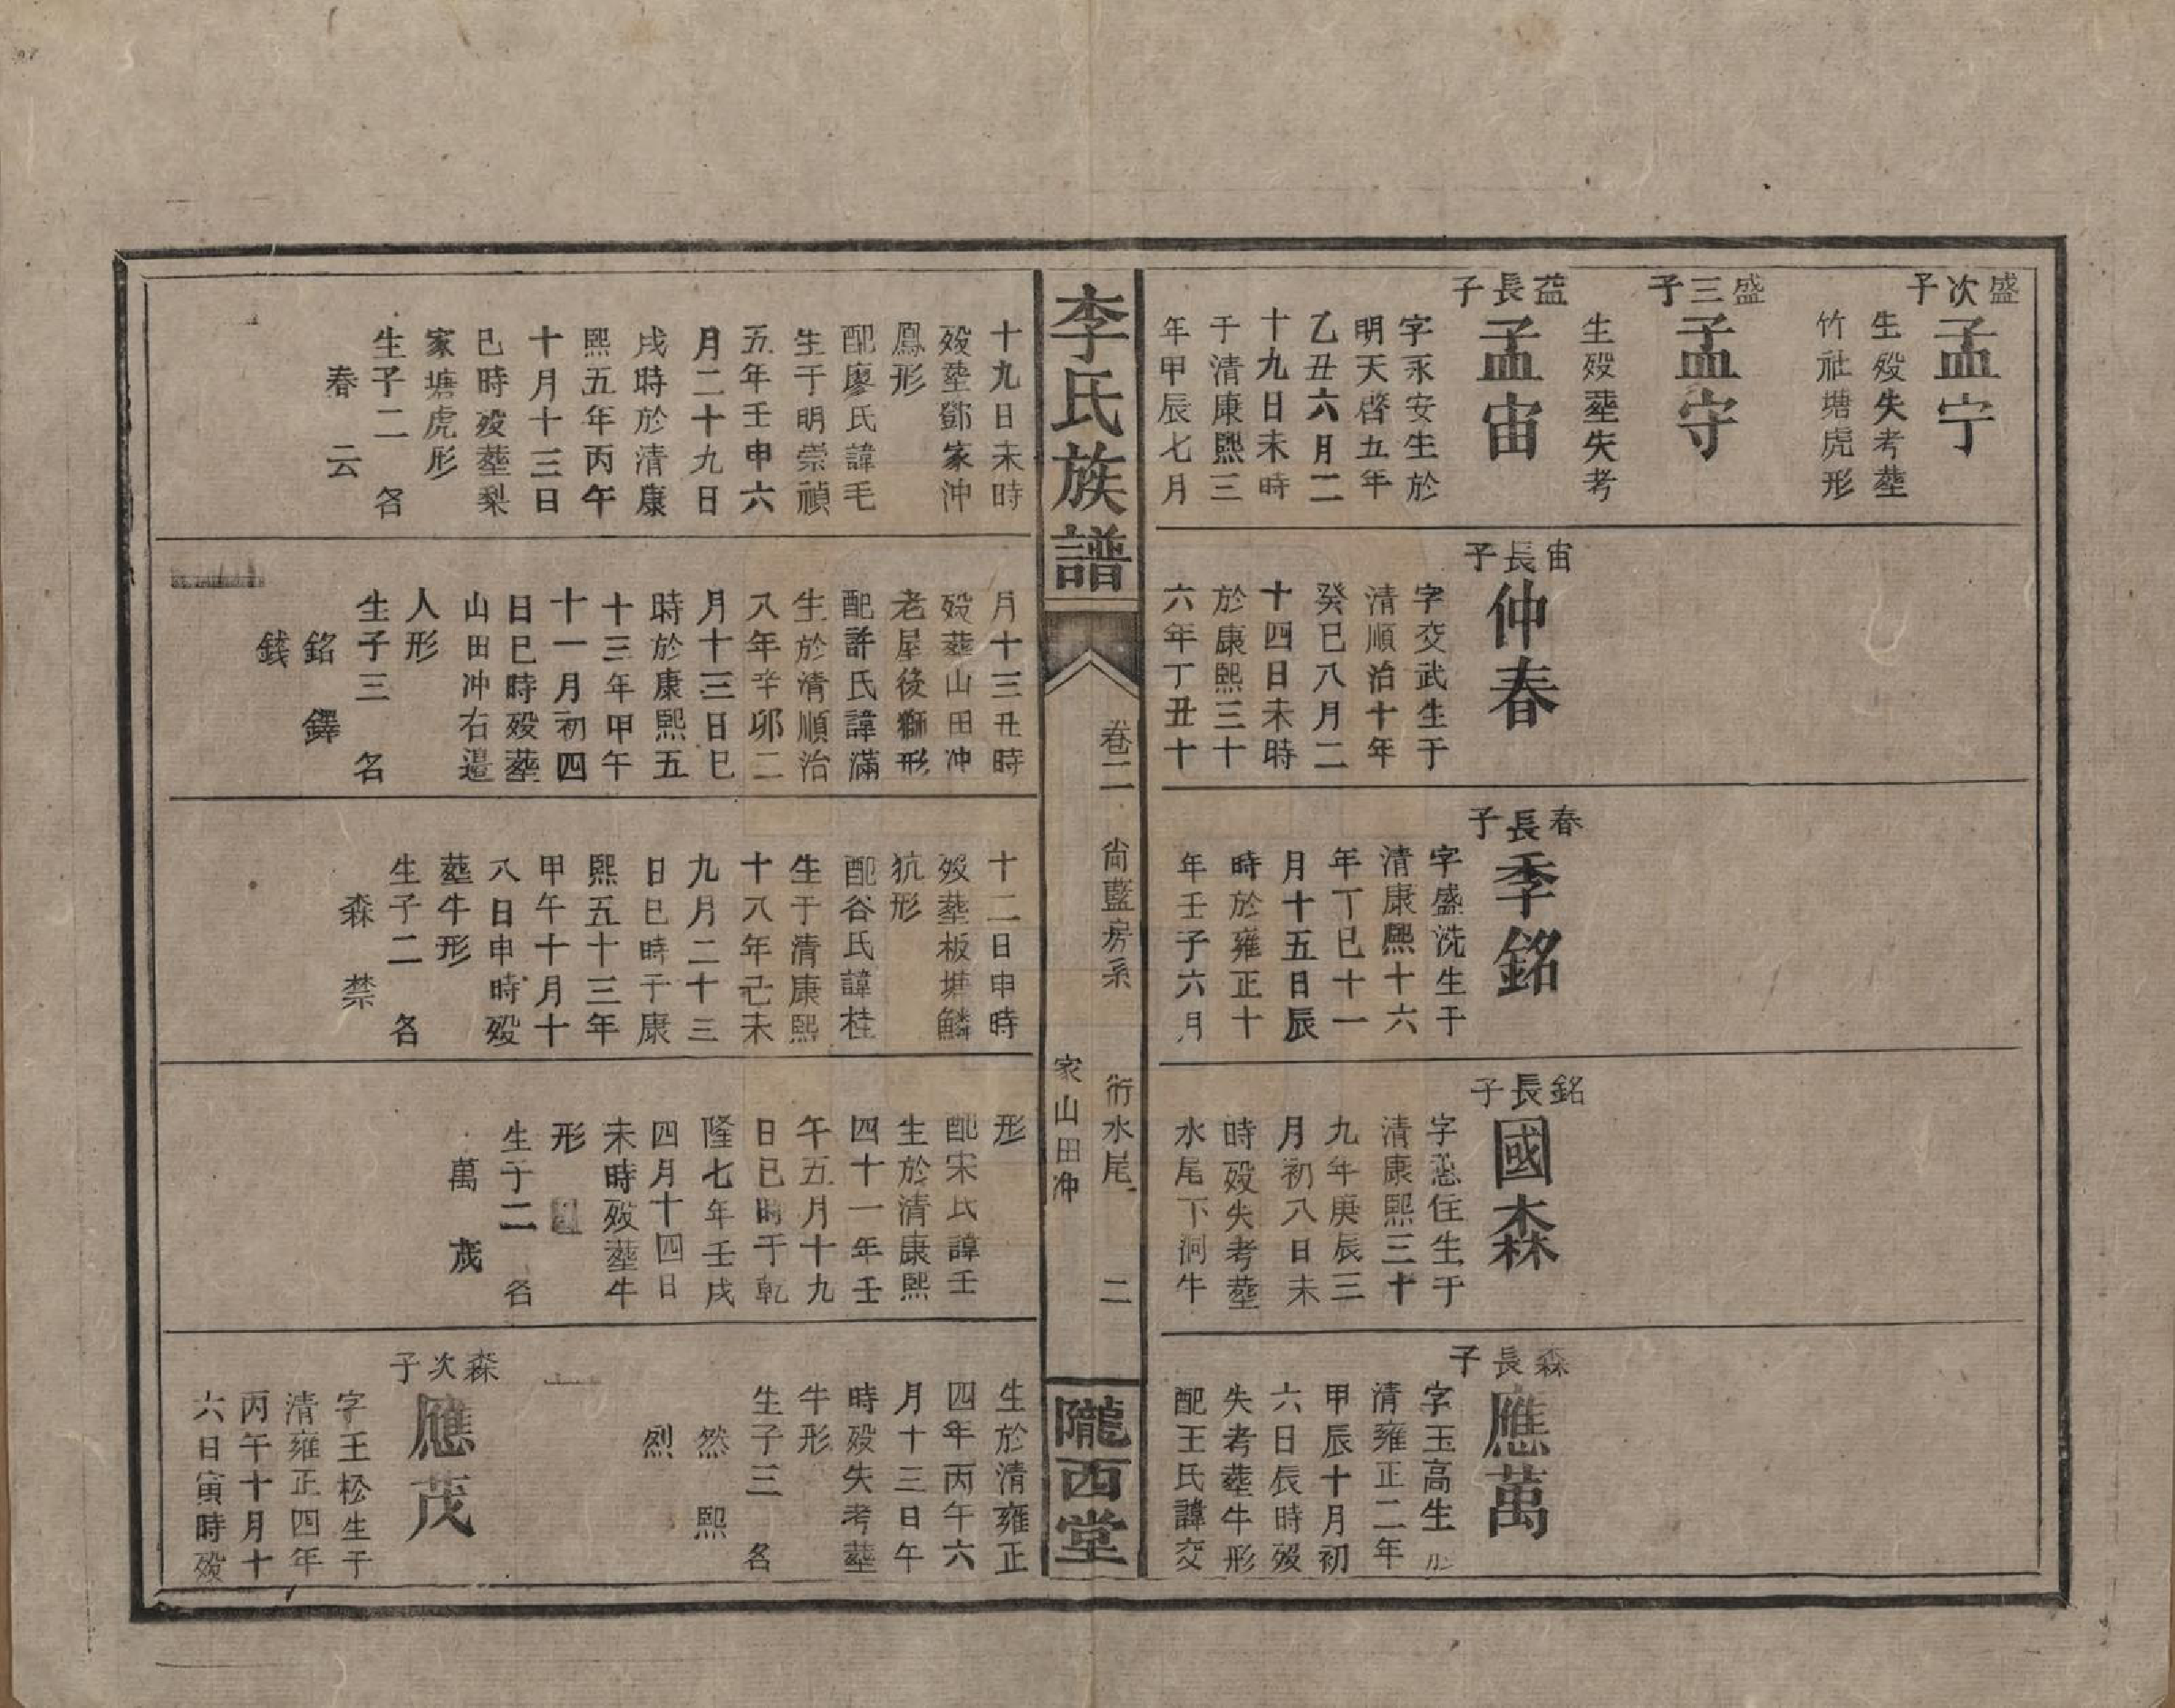 盛次子
孟宁
生殁失考塟
竹社塘虎形
盛三子
孟守
生殁塟失考
益長子
孟宙
字永安生於
明天啓五年
乙丑六月二
十九日未時
于清康熙三
年甲辰七月
宙長子
仲春
字交武生于
清順治十年
癸巳八月二
十四日未時
於康熙三十
六年丁丑十
春長子
季銘
字盛洗生于
清康熙十六
年丁巳十一
月十五日辰
時於雍正十
年壬子六月
銘長子
國森
字 生于
清康熙三十
九年庚辰三
月初八日未
時殁失考塟
水尾下洞牛
森長子
應萬
字玉高生
清雍正二年
甲辰十月初
六日辰時殁
失考塟牛形
配王氏諱交
李氏族譜
卷二 尙藍房系 衍水尾 二
家山田冲
隴西堂
十九日未時
殁塟鄧家沖
鳳形
配廖氏諱毛
生于明崇禎
五年壬申六
月二十九日
戌時於清康
熙五年丙午
十月十三日
巳時殁塟梨
家塘虎形
生子二 名
春 云
月十三丑時
殁塟山田冲
老屋後獅形
配許氏諱滿
生於清順治
八年辛卯二
月十三日巳
時於康熙五
十三年甲午
十一月初四
日巳時殁塟
山田冲右邉
人形
生子三 名
銘 鐸
錢
十二日申時
殁塟板塘鱗
犺形
配谷氏諱桂
生于清康熙
十八年己未
九月二十三
日巳時于康
熙五十三年
甲午十月十
八日申時殁
塟牛形
生子二 名
森 禁
形
配宋氏諱壬
生於清康熙
四十一年壬
午五月十九
日巳時于乾
隆七年壬戌
四月十四日
未時殁塟牛
形
生子二 名
萬 茂
生於清雍正
四年丙午六
月十三日午
時殁失考塟
牛形
生子三 名
然 熙
烈
森次子
應茂
字王松生于
清雍正四年
丙午十月十
六日寅時殁